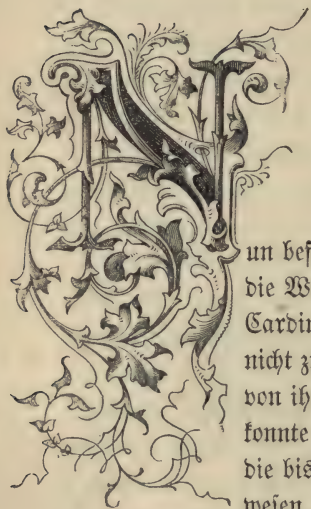 Nun bef
die W
Cardin
nicht z
von ih
konnte
die bis
wesen